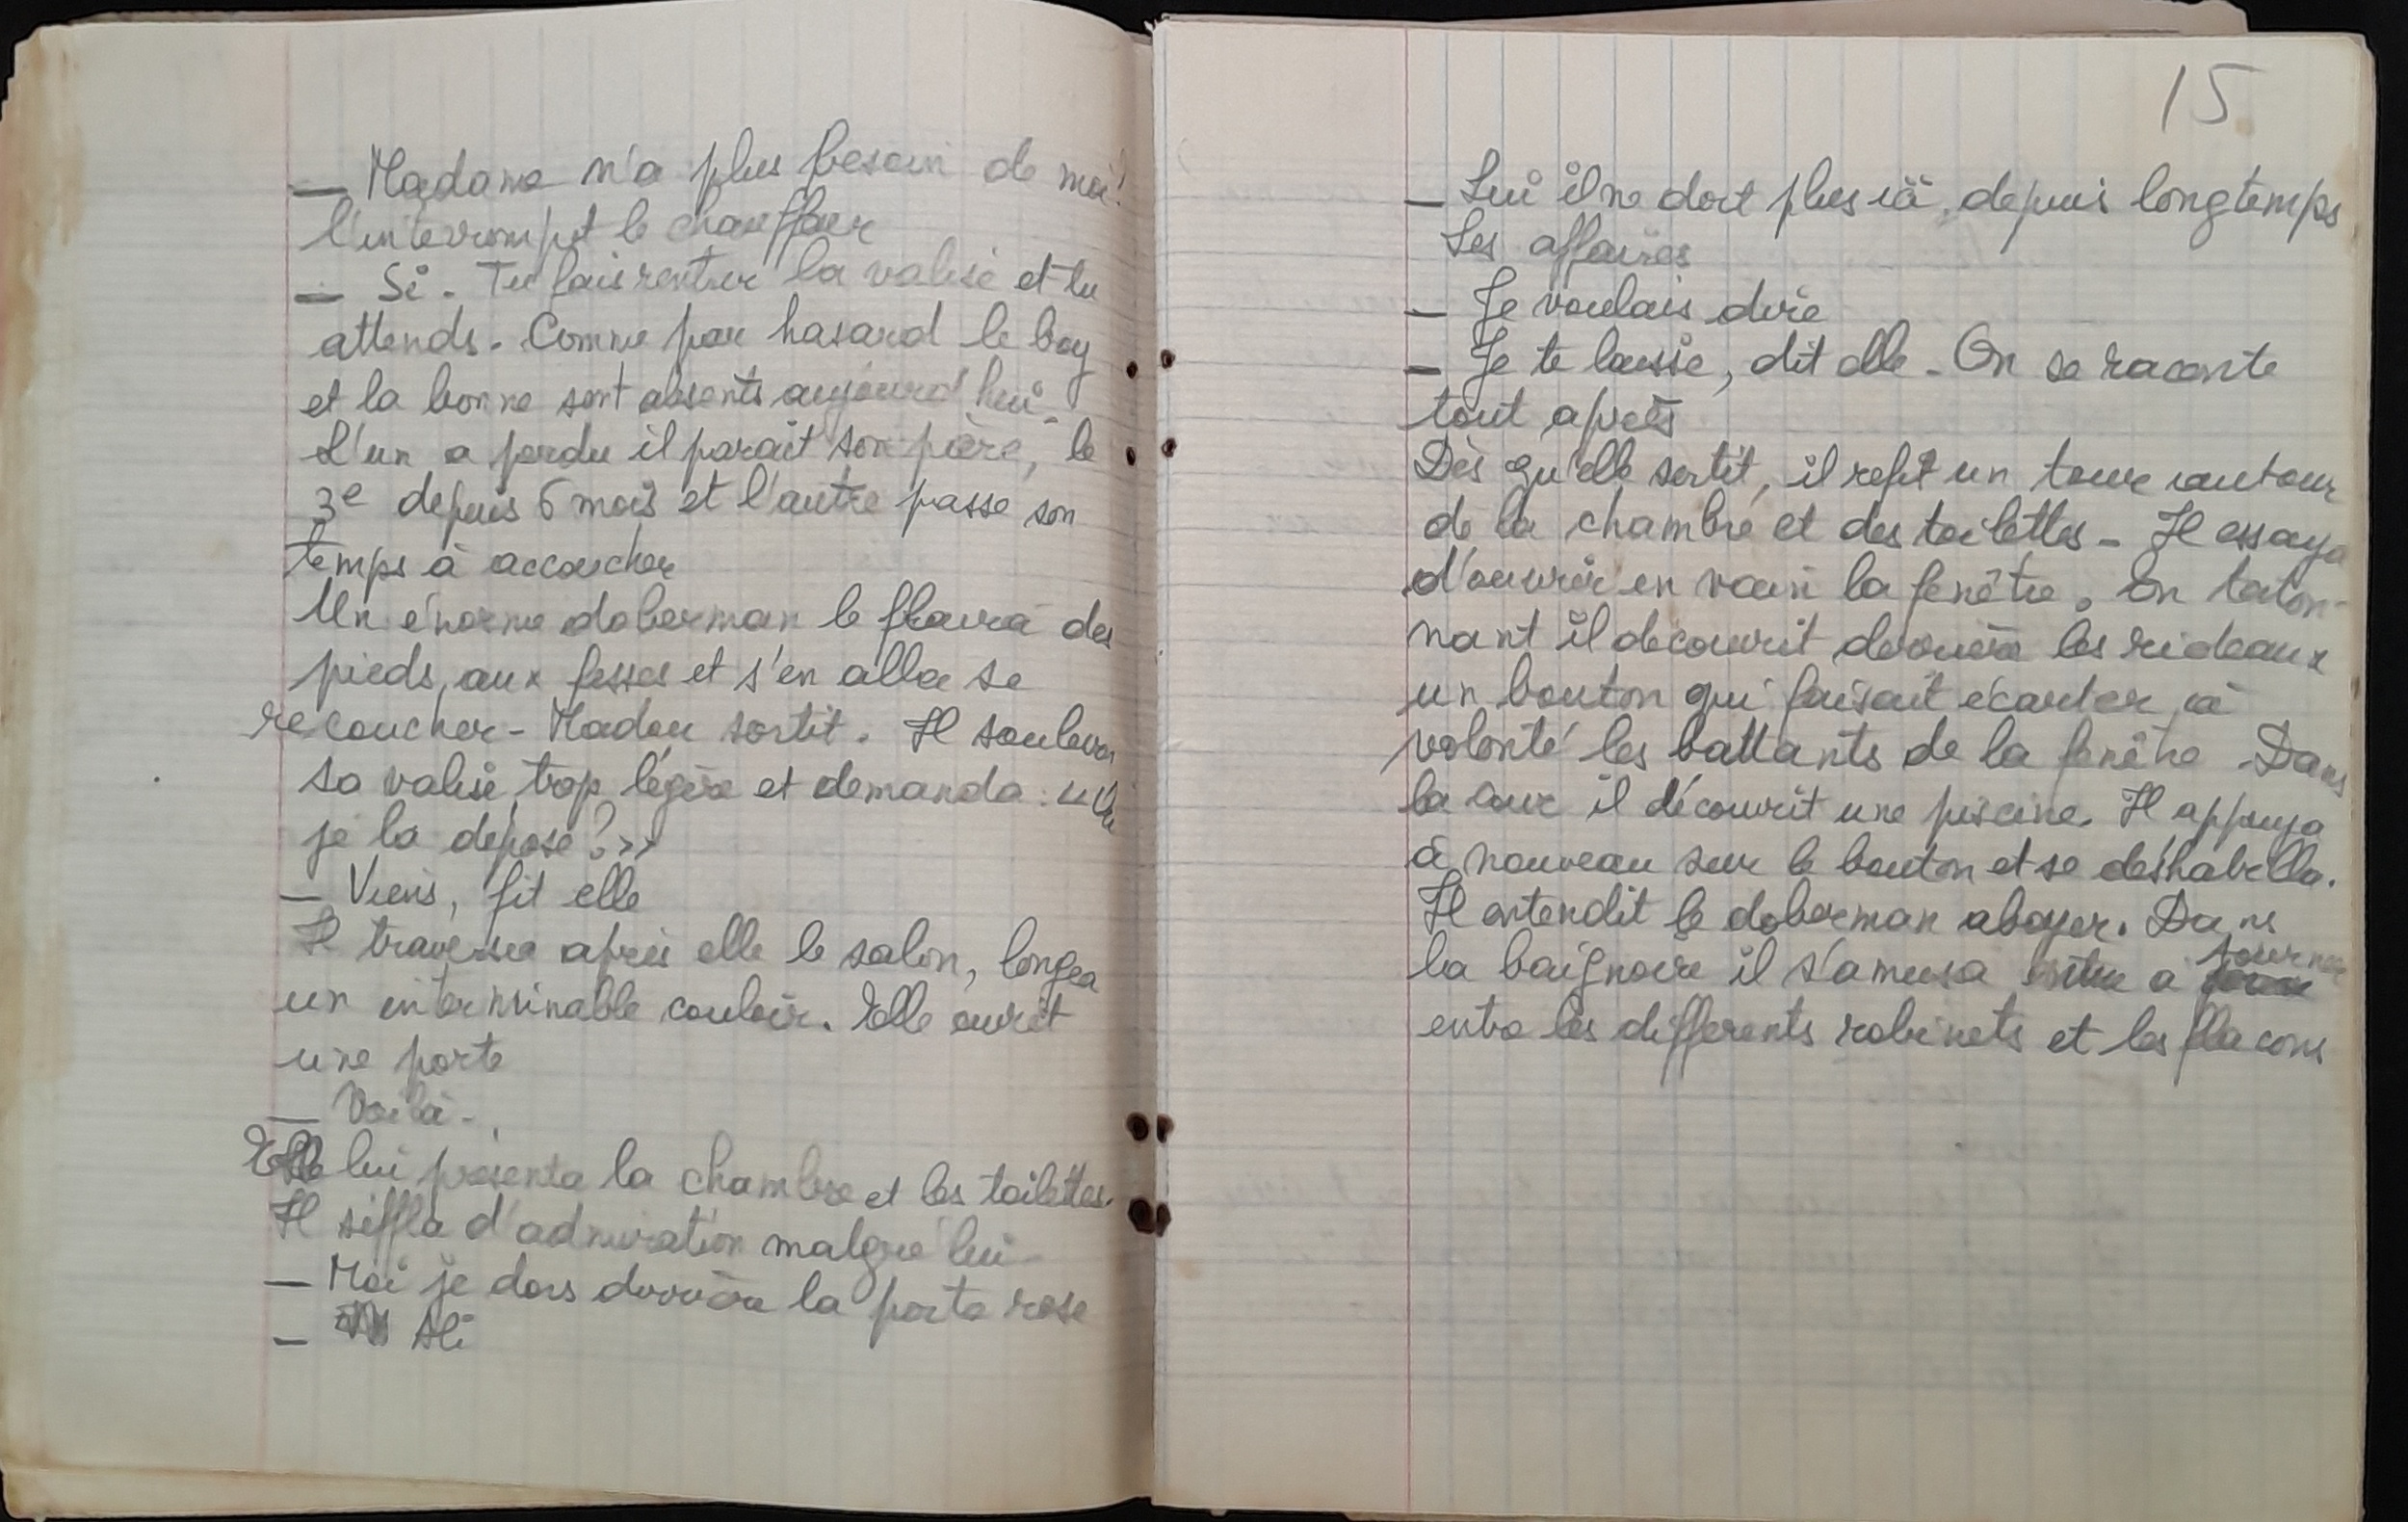 — Madame n'a plus besoin de moi!
l'interrompit le chauffeur
— Si. Tu fais rentrer la valise et tu
attends. Comme par hasard le boy
et la bonne sont absents aujourd'hui.
L'un a perdu il parait son père, le
3e depuis 6 mois et l'autre passe son
temps à accoucher
Un énorme doberman le flaira des
pieds aux fesses et s'en alla se
recoucher - Madou sortit. Il souleva
sa valise trop légère et demanda : « Où
je la dépose ? »
— Viens, fit elle
Il traversa après elle le salon, longea
un interminable couloir. Elle ouvrit
une porte
— Voilà -
Elle lui présenta la chambre et les toilettes.
Il siffla d'admiration malgré lui
— Moi je dors derrière la porte rose
— Ali
15
— Lui il ne dort plus là depuis longtemps
Les affaires
— Je voulais dire
— Je te laisse, dit elle - On se raconte
tout après
Dès qu'elle sortit, il refit un tour autour
de la chambre et des toilettes - Il essaya
d'ouvrir en vain la fenêtre. En taton-
nant il decouvrit derrière les rideaux
un bouton qui faisait écarter à
volonté les battants de la fenêtre - Dans
la cour il découvrit une piscine. Il appuya
à nouveau sur le bouton et se déshabilla.
Il entendit le doberman aboyer. Dans
la baignoire il s'amusa à tourner
entre les differents robinets et les flacons